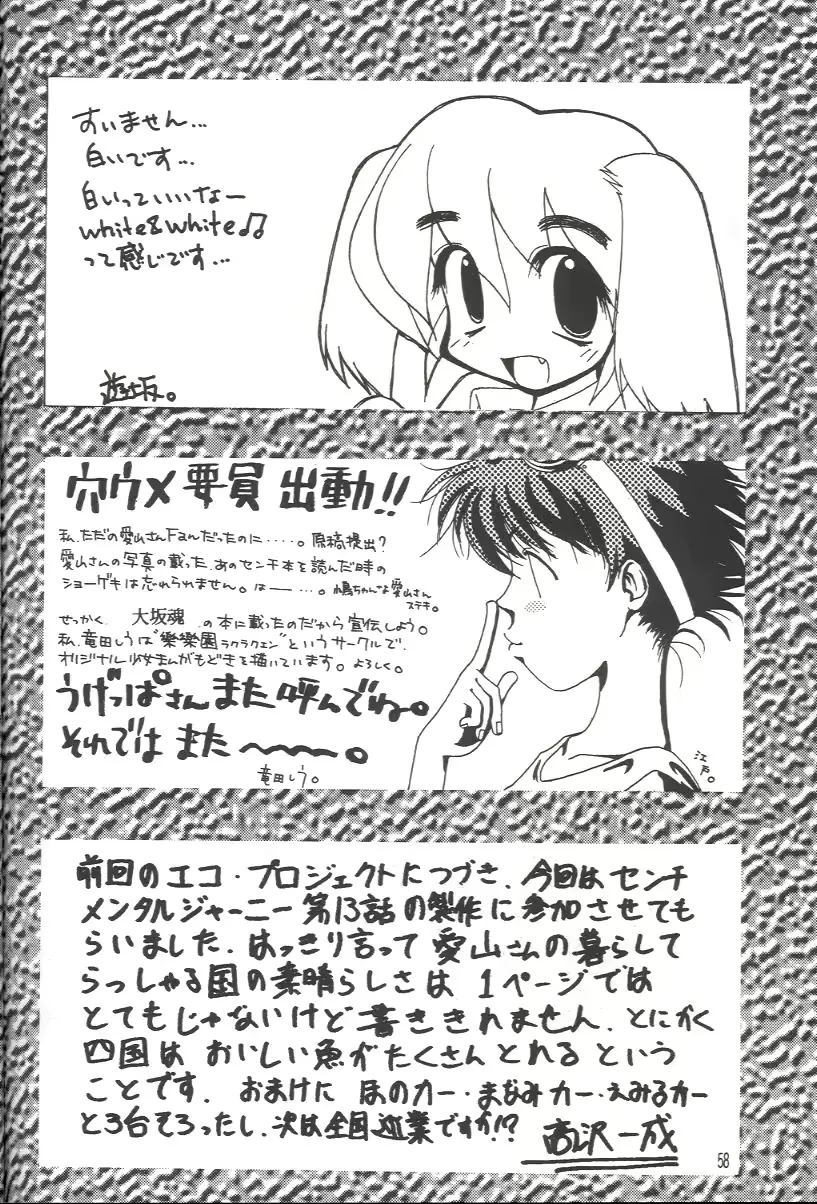 すいません…
白いです…
白いっていいなー
white&white♫
って感じです…
遊坂。
穴ウメ要員 出動!!
私、ただの愛山さんFanだったのに・・・・・。原稿提出?
愛山さんの写真の載った、あのセンチ本を読んだ時の
ショーゲキは忘れられません。は――…。
愛山さん
ステキ。
せっかく 大坂魂 の本に載ったのだから宣伝しよう。
私、竜田しうは"樂樂園ラクラクエン"というサークルで、
オリジナル少女まんがもどきを描いています。よろしく。
うげっぱさん また 呼んでね。
それでは また 〜〜〜。
竜田しう。
江戸。
前回のエコ・プロジェクトにつづき、今回はセンチ
メンタルジャーニー 第13話の製作に参加させても
らいました。はっきり言って 愛山さんの暮らして
らっしゃる国の素晴らしさは 1ページでは
とてもじゃないけど 書ききれません。とにかく
四国は おいしい魚がたくさん とれる という
ことです。 おまけに ほのカー・まなみカー・えみるカー
と3台そろったし、次は全国巡業ですか!?
高沢一成
58